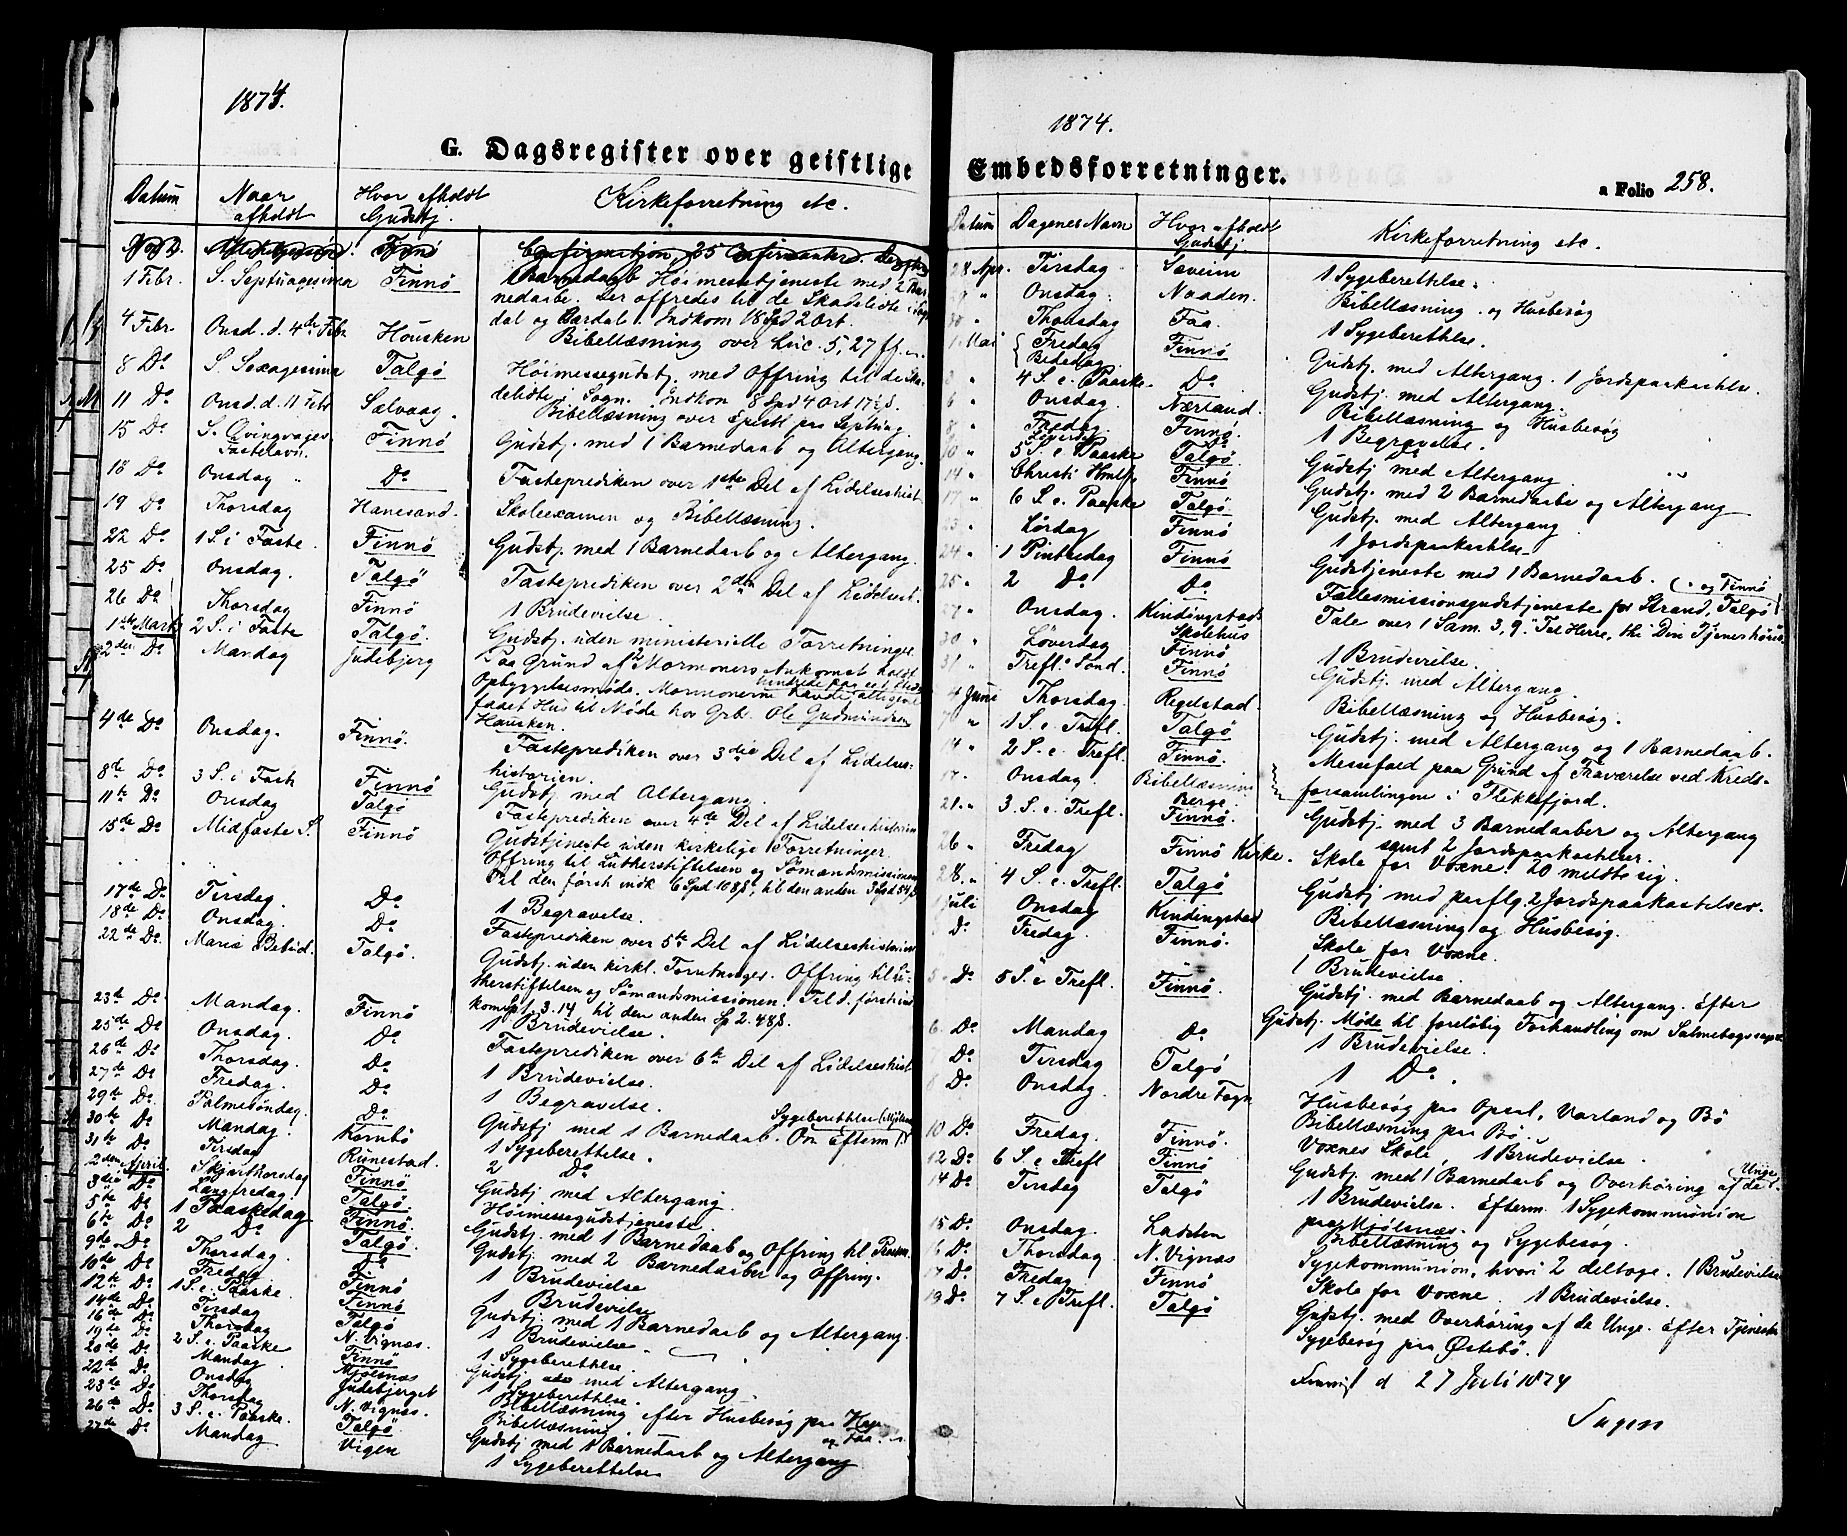 1874.
G. Dagsregister over geistlige
Datum Naar afholdt Hvor afholdt Gudstj. Kirkeforretning etc.
1 Febr. S. Septuagesima Finnö Høimessetjeneste med 2 Bar-
nedaabe. Der offredes til de Skadelidte i Sogn-
dal og Aardal. Indkom 18 Spd 2 Ort.
4 Febr. Onsd. d. 4de Febr Housken Bibellæsning over Luc. 5, 27 ff.
8 Do S. Sexagesima Talgö Høimessegudstj. med Offring til de Ska-
delidte i Sogn. Indkom 8 Spd 4 Ort 17½ ß.
11 Do Onsd. d. 11 Febr Sælvaag. Bibellæsning over Epistl. paa Septuag.
15 Do S. Qvinqvages. Fastelavn. Finnö Gudstj. med 1 Barnedaab og Altergang.
18 Do Onsdag " Do Fasteprediken over 1ste Del af Lidelseshist
19 Do Thorsdag Hanesand. Skoleexamen og Bibellæsning.
22 Do 1 S. i Faste. Finnö Gudstj. med 1 Barnedaab og Altergang.
25 Do Onsdag. Talgö Fasteprediken over 2den Del af Lidelsesh.
26 Do Thorsdag Finnö 1 Brudevielse.
1ste Marts 2 S. i Faste Talgö. Gudstj. uden ministerielle Forretninger.
2den Do Mandag Judebjerg Paa Grund af 2 Mormoners Ankomst holdt
Opbyggelsesmøde. Mormonerne havde
faaet Hus til Møde hos Grb. Ole Gudmundsen
Hausken.
4de Do Onsdag. Finnö. Fasteprediken over 3die Del af Lidelses-
historien.
8de Do 3 S. i Fast Finnö Gudstj med Altergang.
11te Do Onsdag Talgö Fasteprediken over 4de Del af Lidelseshistorien
15de Do Midfaste S. Finnö Gudstjeneste uden kirkelige Forretninger
Offring til Lutherstiftelsen og Sømandsmissionen
Til den først indk 6 Spd 108 ß, til den anden 3 Spd 54 ß
17de Do Tirsdag. Do 1 Begravelse.
18de Do Onsdag. Do Fasteprediken over 5te Del af Lidelseshistorien
22de Do Mariæ Bebud. Talgö. Gudstj. uden kirkl. Forretninger. Offring til Lu-
therstiftelsen og Sømandsmissionen. Til d. først ind
kom Sp. 3.14 til den anden Sp 2.48 ß.
23de Do Mandag. Finnö 1 Brudevielse.
25de Do Onsdag. Do Fasteprediken over 6te Del af Lidelseshist
26de Do Thorsdag. Do 1 Brudevielse.
27de Do Fredag. Do 1 Begravelse.
29de Do Palmesöndag. Do Gudstj med 1 Barnedaab. On Efterm 1 Sygeberettelse
30te Do Mandag. Kornbö 1 Sygeberettelse.
31te Do Tirsdag Runestad. 2 Do
2den April. Skjærthorsdag Finnö Gudstj med Altergang.
3die Do Langfredag. Talgö Høimessegudstjeneste.
5te Do 1 Paaskedag Finnö. Gudstj. med 1 Barnedaab og Offring til Præsten.
6te Do 2 Do Talgö. Gudstj. med 2 Barnedaaber og Offring.
9de Do Thorsdag. Do 1 Brudevielse
10de Do Fredag Finnö 1 Brudevielse
12te Do 1 S. e. Paaske. Finnö Gudstj. med 1 Barnedaab og Altergang.
14de Do Tirsdag Talgö 1 Brudevielse
16de Do Thorsdag N. Vignæs. 1 Sygeberettelse.
19de Do 2 S. e. Paaske Finnö Gudstj. med Altergang.
20de Do Mandag. Mjølsnæs 1 Sygeberettelse.
22de Do Onsdag Judebjerget Bibellæsning efter Husbesøg paa Hage og Faa.
23de Do Thorsdag N. Vignæs. Bibellæsning.
26de Do 3 S. e. Paaske. Talgö Gudstj med 1 Barnedaab og Altergang
27de Do Mandag Vigen 1 Sygeberettelse
1874.
Embedsforretninger.
a Folio 258.
Datum Dagenes Navn Hvor afholdt Gudstj Kirkeforretning etc.
28 Apr. Tirsdag Sæveim 1 Sygeberettelse.
9 " Onsdag. Naaden. Bibellæsning og Husbesøg
30 " Thorsdag Faa. 1 Sygeberettelse.
1. Mai Fredag Bededag Finnö Gudstj. med Altergang. 1 Jordspaakastelse.
3 " 4 S. e. Paaske. Do Gudstj. med Altergang.
6 " Onsdag Nærland. Bibellæsning og Husbesøg
8 " Fredag Finnö. 1 Begravelse.
10 " 5 S. e. Paaske Talgö. Gudstj med Altergang.
14 " Christi Hmlf. Finnö Gudstj. med 2 Barnedaabe og Altergang
17 " 6 S. e. Paaske Talgö Gudstj. med Altergang
23 " Lørdag Finnö 1 Jordspaakastelse
24 " 1 Pintsedag Finnö Gudstjeneste med 1 Barnedaab.
25 " 2 Do Do Fællesmissionsgudstjeneste for Strand, Talgö og Finnö
27 " Onsdag. Kindingstads Skolehus Tale over 1 Sam. 3, 9. "Tal Herre, thi Din Tjener hører
30 " Løverdag Finnö 1 Brudevielse.
31 " Trefl. Sönd. Finnö Gudstj. med Altergang.
4 Juni Thorsdag. Regelstad. Bibellæsning og Husbesøg.
7 " 1 S. e. Trefl. Talgö Gudstj. med Altergang og 1 Barnedaab.
14 " 2 S. e. Trefl. Finnö. Messefald paa Grund af Fraværelse ved Kreds-
forsamlingen i Flekkefjord.
17 " Onsdag. Bibellæsning Berge.
21 " 3 S. e. Trefl. Finnö. Gudstj. med 3 Barnedaaber og Altergang
samt 2 Jordspaakastelser.
26 " Fredag Finnö Kirke. Skole for Voxne. 20 meldte sig.
28. " 4 S. e. Trefl. Talgö Gudstj med paaflg. 2 Jordspaakastelser.
1 Juli Onsdag Kindingstad Bibellæsning og Husbesøg.
Do. Fredag. Finnö. Skole for Voxne.
1 Brudevielse
5. Do 5 S. e Trefl. Finnö. Gudstj. med Barnedaab og Altergang. Efter
Gudstj. Møde til foreløbig Forhandling om Salmebogssagen
6. Do Mandag Do 1 Brudevielse.
Do Tirsdag Talgö 1 Do.
8 Do. Onsdag. Nordre Fogn Husbesøg paa Opsal, Varland og Bø
Bibellæsning paa Bø.
10 Do Fredag. Finnö. Voxnes Skole, 1 Brudevielse.
12 Do 6 S. e Trefl Finnö Gudstj. med 1 Barnedaab og Overhøring af de Unge
14 Do Tirsdag Talgö 1 Brudevielse. Efterm. 1 Sygekommunion
paa Mjølsnæs.
15 Do. Onsdag Ladsten Bibellæsning og Sygebesøg.
6 Do Thorsdag N. Vignæs Sygekommunion, hvori 2 deltoge. 1 Brudevielse
17 Do. Fredag Finnö Skole for Voxne. 1 Brudevielse.
19 Do. 7 S. e. Trefl. Talgö Gudstj. med Overhøring af de Unge. Efter Tjenesten
Sygebesøg paa Østebö.
d 27 Juli 1874